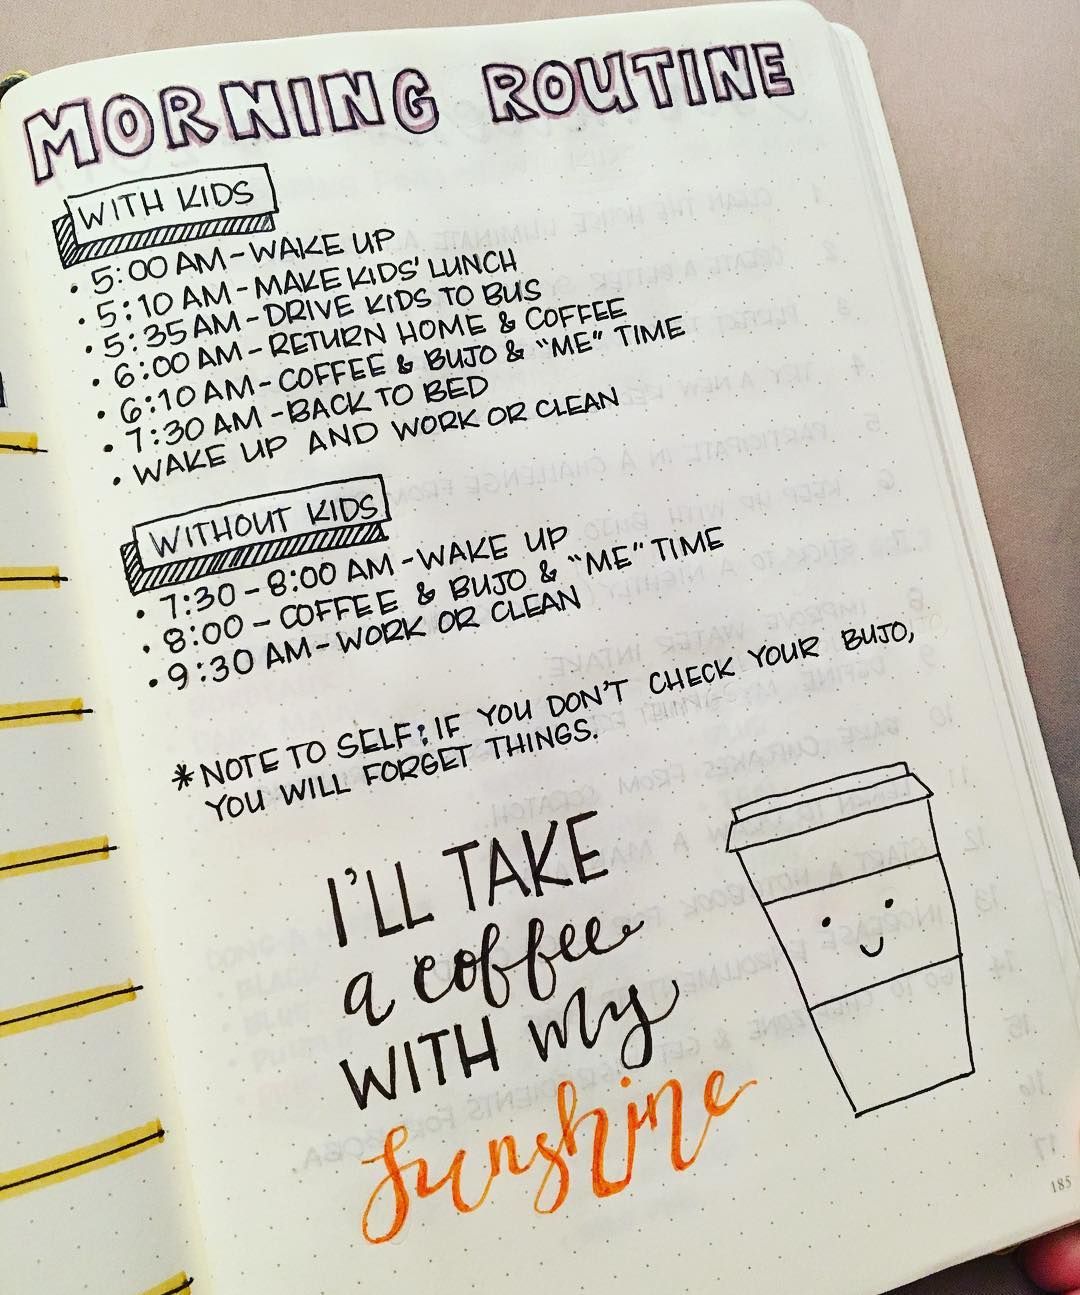 MORNING ROUTINE
WITH KIDS
• 5:00 AM - WAKE UP
• 5:10 AM - MAKE KIDS' LUNCH
• 5:35 AM - DRIVE KIDS TO BUS
• 6:00 AM - RETURN HOME & COFFEE
• 6:10 AM - COFFEE & BUJO & "ME" TIME
• 7:30 AM - BACK TO BED
• WAKE UP AND WORK OR CLEAN
WITHOUT KIDS
• 7:30 - 8:00 AM - WAKE UP
• 8:00 - COFFEE & BUJO & "ME" TIME
• 9:30 AM - WORK OR CLEAN
* NOTE TO SELF: IF YOU DON'T CHECK YOUR BUJO,
YOU WILL FORGET THINGS.
I'LL TAKE
a coffee
WITH my
sunshine
185